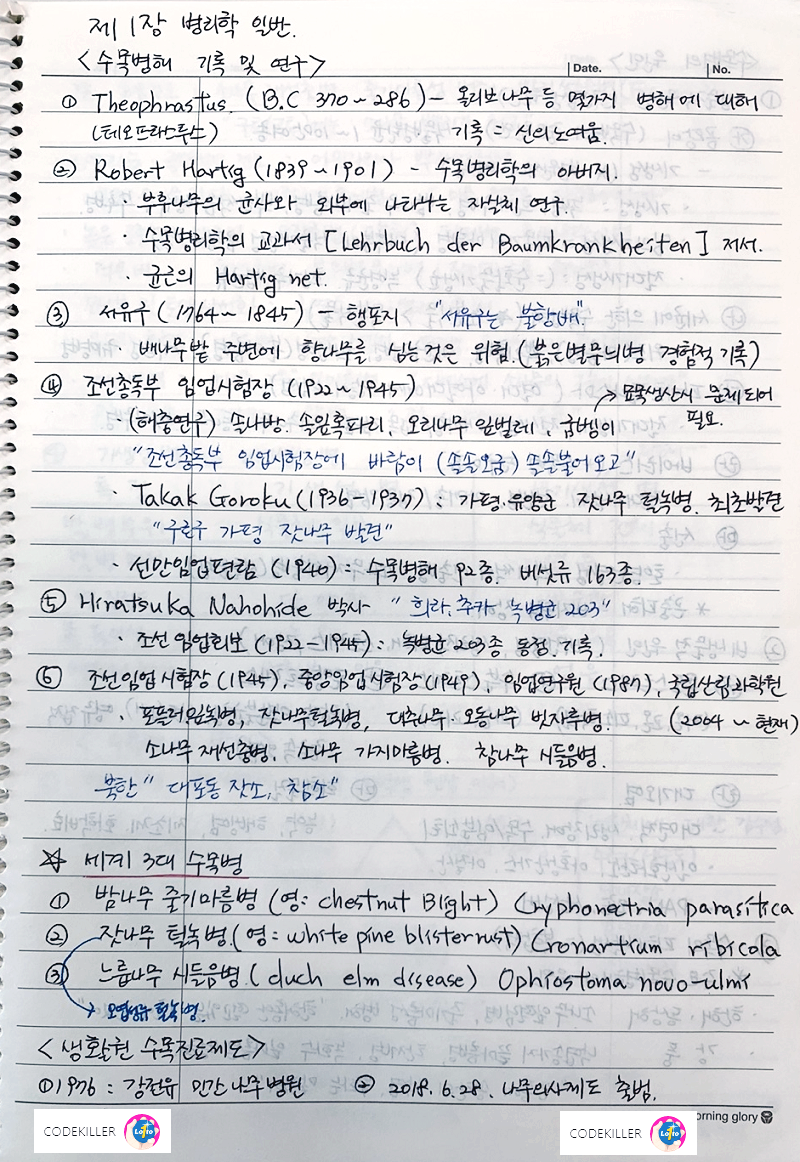 제 1장 병리학 일반.
<수목병해 기록 및 연구>
Date. No.
① Theophrastus. (B.C 370~286) - 올리브나무 등 몇가지 병해에 대해
(테오프라스투스) 기록 = 신의 노여움.
② Robert Hartig (1839~1901) - 수목병리학의 아버지.
· 부후나무의 균사와 외부에 나타나는 자실체 연구.
· 수목병리학의 교과서 [Lehrbuch der Baumkrankheiten] 저서.
· 균근의 Hartig net.
③ 서유구 (1764~1845) - 행포지 "서유구는 불향배"
· 배나무밭 주변에 향나무를 심는것은 위험. (붉은별무늬병 경험적 기록)
④ 조선총독부 임업시험장 (1922~1945)
→ 묘목생산시 문제되어
· (해충연구) 솔나방. 솔잎혹파리, 오리나무 잎벌레, 굼벵이 필요.
"조선총독부 임업시험장에 바람이 (솔솔오굼) 쏠쏠불어오고"
· Takak Goroku (1936-1937) : 가평.유양군 잣나무 털녹병. 최초발견
"구로구 가평 잣나무 발견"
· 선만임업편람 (1940) : 수목병해 92종. 버섯류 163종.
⑤ Hiratsuka Nahohide 박사 "히라,추카 녹병균 203"
· 조선임업회보 (1922-1945) : 녹병균 203종 동정.기록.
⑥ 조선임업시험장(1945), 중앙임업시험장(1949), 임업연구원 (1987), 국립산림과학원
· 포플러잎녹병, 잣나무털녹병, 대추나무 오동나무 빗자루병. (2004~현재)
소나무 재선충병, 소나무 가지마름병. 참나무 시들음병.
북한 " 대포동 잣소, 참소"
☆ 세계 3대 수목병
① 밤나무 줄기마름병 (영: chestnut Blight) Cryphonectria parasitica
② 잣나무 털녹병.(영: white pine blister rust) Cronartium ribicola
③ 느릅나무 시들음병 (duch elm disease) Ophiostoma novo-ulmi
→ 오엽송류 털녹병.
<생활권 수목진료제도>
① 1976 : 강전유 민간 나무병원 ② 2018.6.28. 나무의사제도 출범.
orning glory
CODEKILLER Lotto
CODEKILLER Lotto